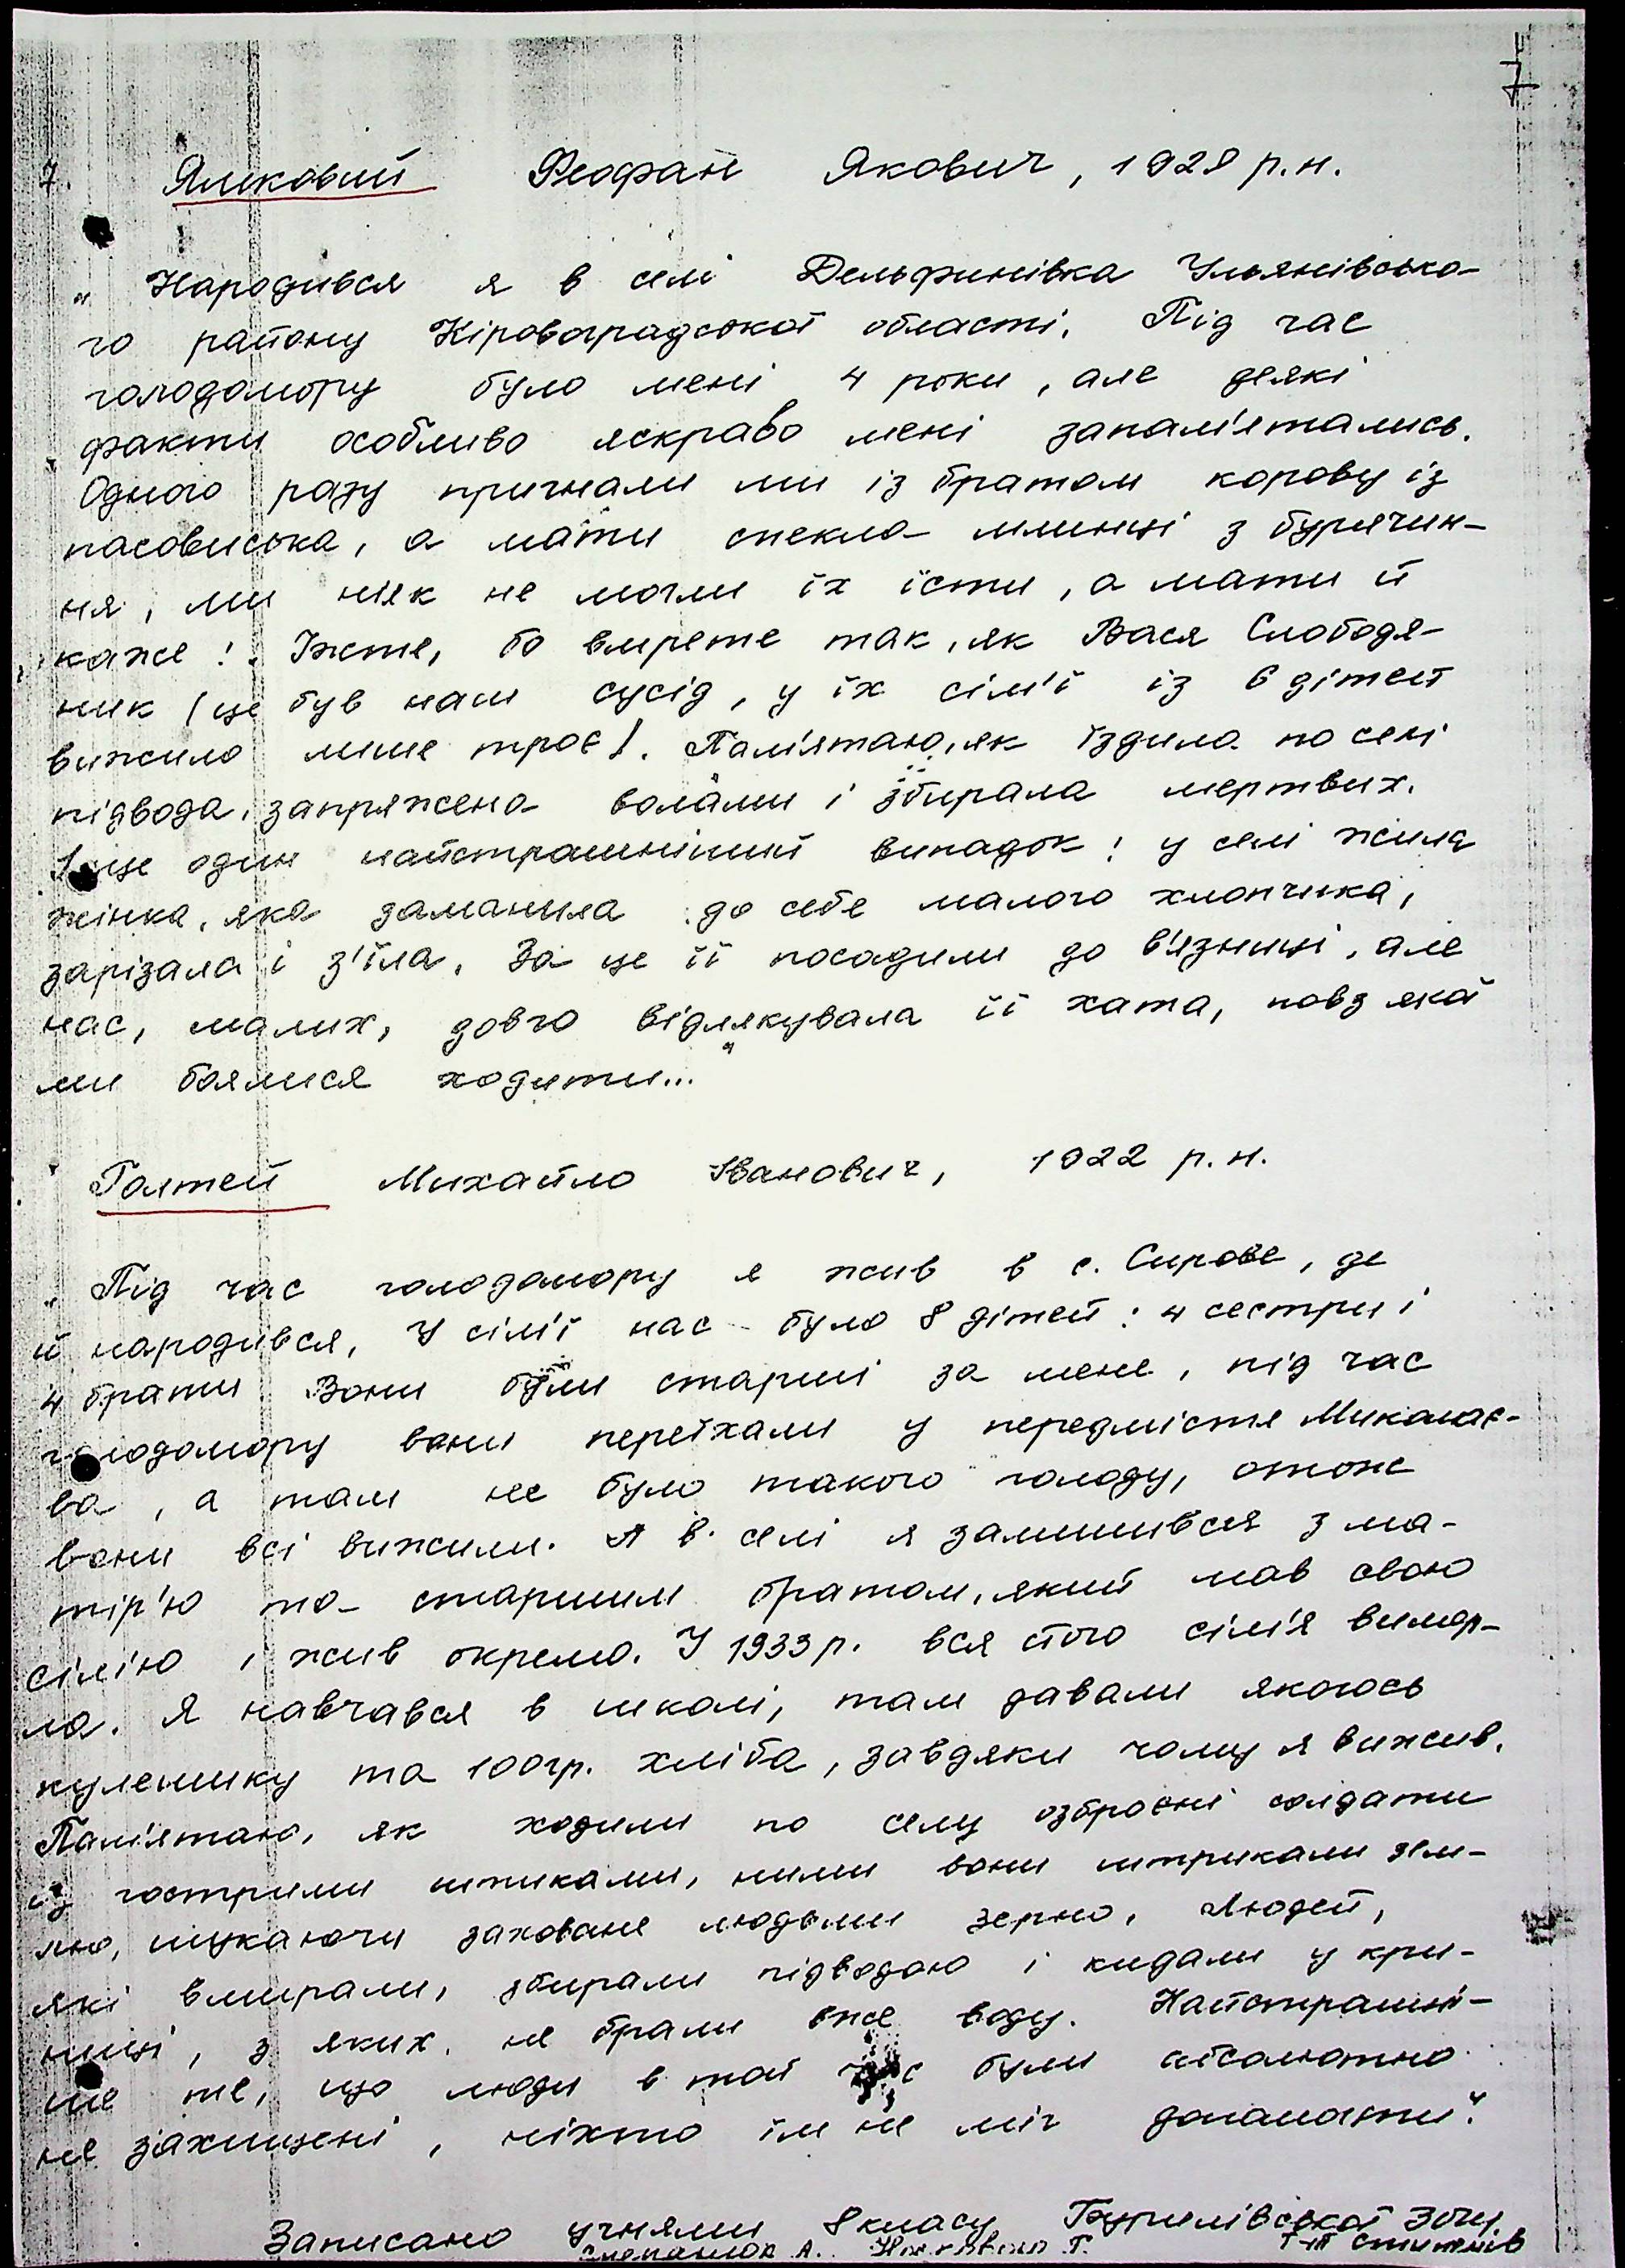 7
7. Яликовий Феофан Якович, 1928 р.н.
„ Народився я в селі Дельфинівка Ульянівсько-
го району Кіровоградської області. Під час
голодомору було мені 4 роки, але деякі
факти особливо яскраво мені запам'ятались.
Одного разу пригнали ми із братом корову із
пасовиська, а мати спекла млинці з бурячин-
ня, ми ніяк не могли їх їсти, а мати й
каже: Їжте, бо вмрете так, як Вася Слободя-
ник (це був наш сусід, у їх сім'ї із 6 дітей
вижило лише троє). Пам'ятаю, як їздила по селі
підвода, запряжена волами і збирала мертвих.
І ще один найстрашніший випадок: у селі жила
жінка, яка заманила до себе малого хлопчика,
зарізала і з'їла. За це її посадили до в'язниці, але
нас, малих, довго відлякувала її хата, повз якої
ми боялися ходити..."
Голтей Михайло Іванович, 1922 р.н.
„ Під час голодомору я жив в с. Сирове, де
й народився. У сім'ї нас було 8 дітей: 4 сестри і
4 брати. Вони були старші за мене, під час
голодомору вони переїхали у передмістя Миколає-
ва, а там не було такого голоду, отож
вони всі вижили. А в селі я залишився з ма-
тір'ю та старшим братом, який мав свою
сім'ю і жив окремо. У 1933 р. вся його сім'я вимер-
ла. Я навчався в школі, там давали якогось
кулешику та 100гр. хліба, завдяки чому я вижив.
Пам'ятаю, як ходили по селу озброєні солдати
із гострими штиками, ними вони штрикали зем-
лю, шукаючи заховане людьми зерно. Людей,
які вмирали, збирали підводою і кидали у кри-
ниці, з яких не брали вже воду. Найстрашні-
ше те, що люди в той час були абсолютно
не захищені, ніхто їм не міг допомогти."
Записано учнями 8 класу Бурилівської ЗОШ
Степанюк А. Т. І-ІІ ступенів